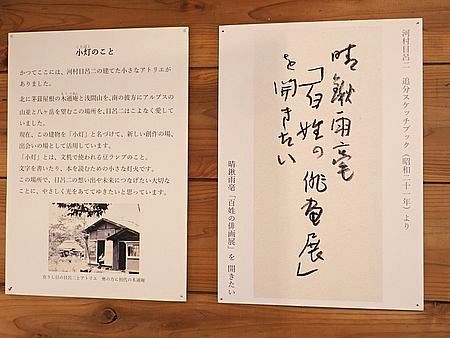 小灯のこと
かつてここには、河村目呂二の建てた小さなアトリエが
ありました。
北に茅葺屋根の木通庵と浅間山を、南の彼方にアルプスの
山並と八ヶ岳を望むこの場所を、目呂二はこよなく愛して
いました。
現在、この建物を「小灯」と名づけて、新しい創作の場、
出会いの場として活用しています。
「小灯」とは、文机で使われる豆ランプのこと。
文字を書いたり、本を読むための小さな灯火です。
この場所で、目呂二の想い出や未来につなげたい大切な
ことに、やさしく光をあててゆきたいと思っています。
在りし日の目呂二とアトリエ 奥の方に初代の木通庵
河村目呂二 追分スケッチブック(昭和二十一年)より
晴鍬雨毫
「百姓の俳画展」
を開きたい
晴鍬雨毫「百姓の俳画展」を 開きたい